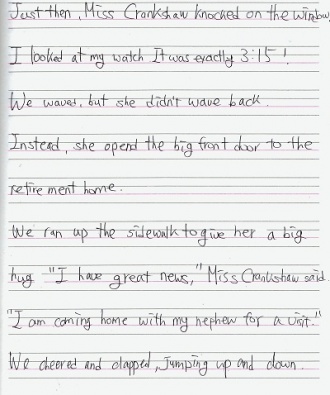 Just then, Miss Crankshaw knocked on the window
I looked at my watch It was exactly 3:15!
We waved, but she didn't wave back.
Instead, she opend the big front door to the
retirement home.
We ran up the sidewalk to give her a big
hug "I have great news," Miss Crankshaw said.
"I am coming home with my nephew for a visit."
We cheered and clapped, Jumping up and down.